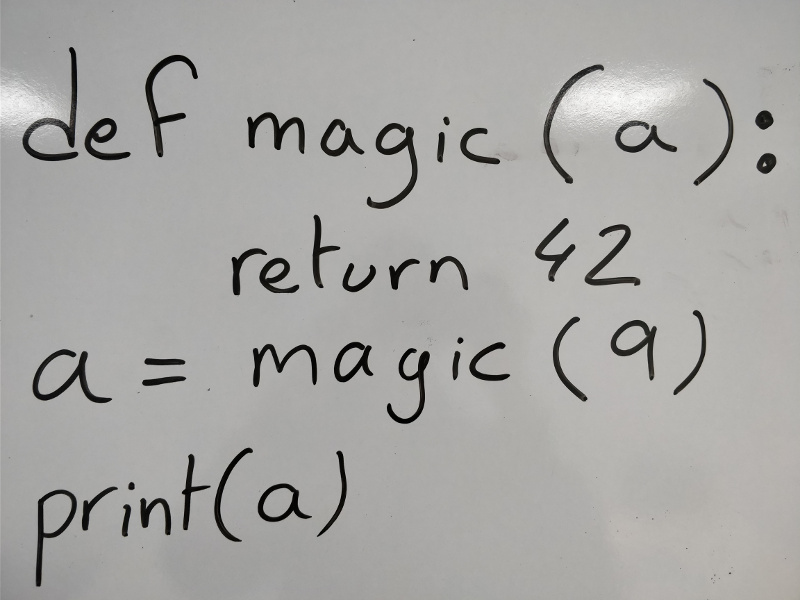 def magic (a):
return 42
a = magic (9)
print(a)